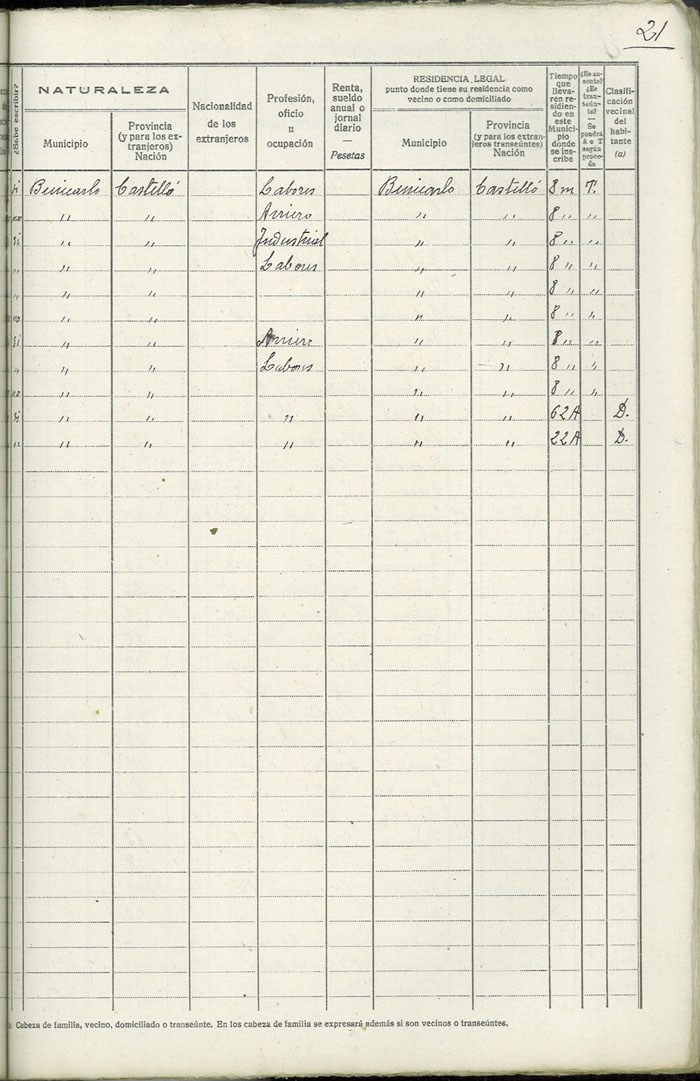 21
¿Sabe escribir?
NATURALEZA
Municipio
Provincia (y para los extranjeros) Nación
Nacionalidad de los extranjeros
Profesión, oficio u ocupación
Renta, sueldo anual o jornal diario — Pesetas
RESIDENCIA LEGAL
punto donde tiene su residencia como vecino o como domiciliado
Municipio
Provincia (y para los extranjeros transeúntes) Nación
Tiempo que llevaren residiendo en este Municipio donde se inscribe
¿Es ausente? ¿Es transeúnte? — Se pondrá A o T según proceda
Clasificación vecinal del habitante (a)
si Benicarlo Castelló Labores Benicarlo Castelló 8 m T.
no " " Arriero " " 8 " "
si " " Industrial " " 8 " "
" " " Labores " " 8 " "
" " " " " 8 " "
no " " " " 8 " "
si " " Arriero " " 8 " "
" " " Labores " " 8 " "
no " " 8 " "
si " " " " " 62 A D.
" " " " " " 22 A D.
Cabeza de familia, vecino, domiciliado o transeúnte. En los cabeza de familia se expresará además si son vecinos o transeúntes.